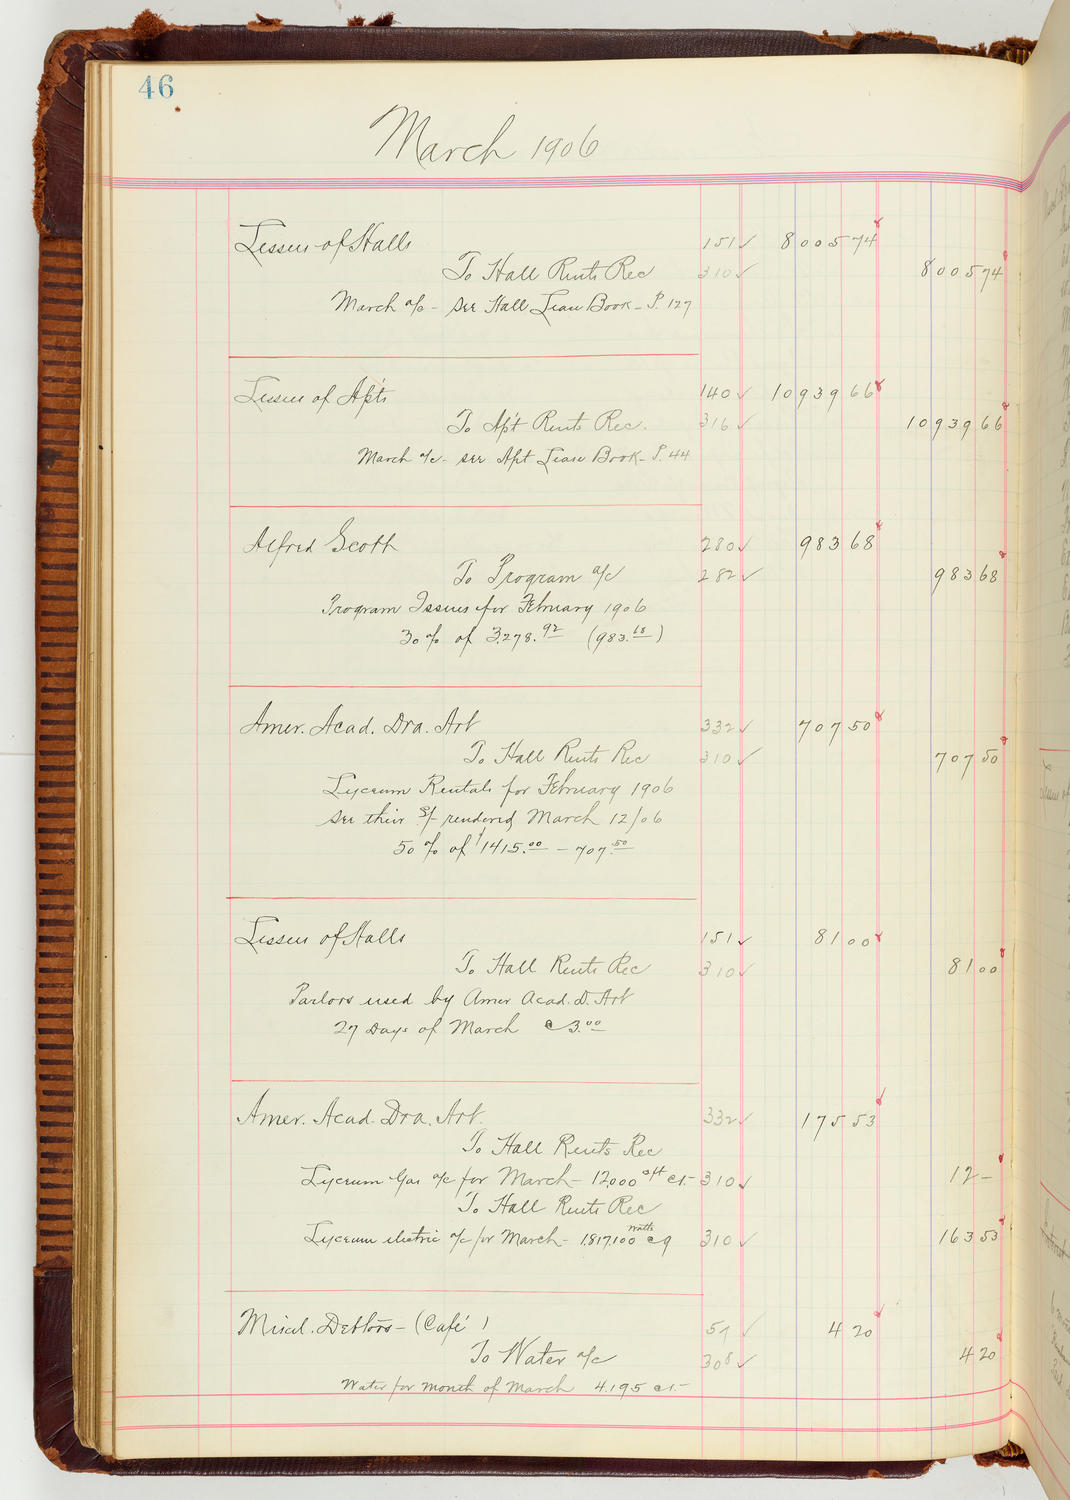 46
March 1906
Lessees of Halls 151 ✓ 8005 74
To Hall Rents Rec 310 ✓ 8005 74
March a/c - see Hall Lease Book - P. 127
Lessees of Apts 140 ✓ 10939 66
To Apt Rents Rec. 316 ✓ 10939 66
March a/c - see Apt Lease Book - P. 44
Alfred Scott 280 ✓ 983 68
To Program a/c 282 ✓ 983 68
Program Issues for February 1906
30% of 3278.92 (983.68)
Amer. Acad. Dra. Art 332 ✓ 707 50
To Hall Rents Rec 310 ✓ 707 50
Lyceum Rentals for February 1906
see their rendered March 12/06
50% of 1415.00 - 707.50
Lessees of Halls 151 ✓ 81 00
To Hall Rents Rec 310 ✓ 81 00
Parlors used by Amer Acad. D. Art
27 Days of March @ 3.00
Amer. Acad. Dra. Art. 332 ✓ 175 53
To Hall Rents Rec
Lyceum Gas a/c for March - 12000 c/ft @ 1.- 310 ✓ 12 -
To Hall Rents Rec
Lyceum electric a/c for March - 1,817,100 watts @ 9 310 ✓ 163 53
Miscl. Debtors - (Café) 57 ✓ 4 20
To Water a/c 308 ✓ 4 20
Water for month of March 4.195 @ 1.-